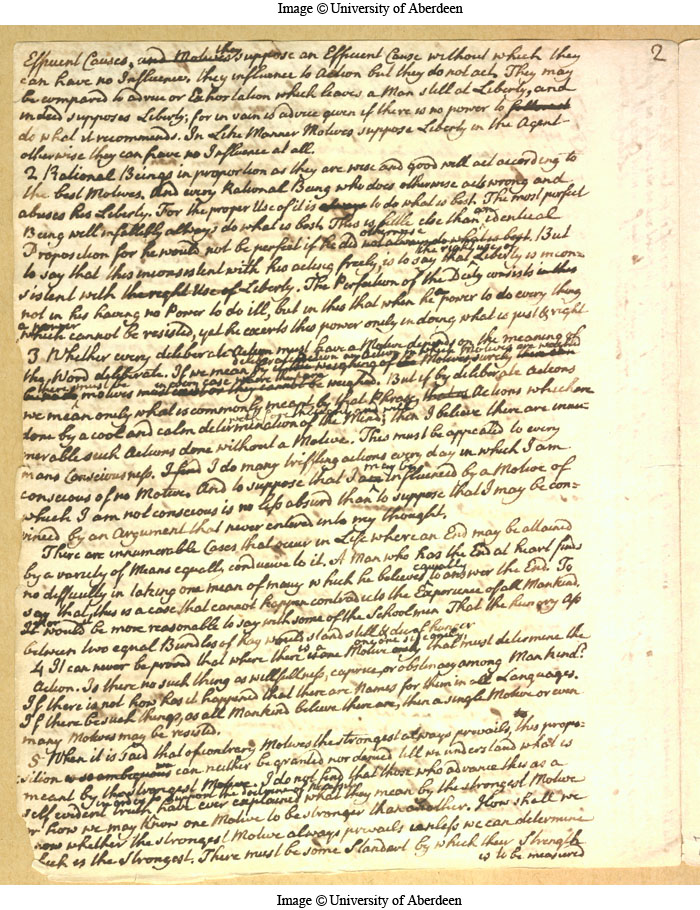 Image © University of Aberdeen
2
Efficient Causes, and Motives they suppose an Efficient Cause without which they
can have no Influence, they influence to Action but they do not act. They may
be compared to advice or Exhortation which leaves a Man still at Liberty, and
indeed supposes Liberty; for in vain is advice given if there is no power to follow it
do what it recommends. In Like Manner Motives suppose Liberty in the Agent
otherwise they can have no Influence at all.
2 Rational Beings in proportion as they are wise and good will act according to
the best Motives, And every Rational Being who does otherwise acts wrong and
abuses his Liberty. For the proper Use of it is always to do what is best. The most perfect
Being will infallibly always do what is best. This is little else than an identical
otherwise
Proposition for he would not be perfect if he did not always do what is best. But
the right use of
to say that this inconsistent with his acting freely, is to say that Liberty is incon=
sistent with the right Use of Liberty. The Perfection of the Deity consists in this
not in his having no Power to do ill, but in this that when he a power to do every thing
a power
which cannot be resisted, yet he exerts this power onely in doing what is just & right
3 Whether every deliberate Action must have a Motive depends on the meaning of
the Word deliberate. If we mean by weighing of Motives surely
there must be motives must be weighed. But if by deliberate actions
we mean onely what is commonly meant by that Phrase, that is Actions which are
done by a cool and calm determination of the Mind, then I believe there are innu=
merable such Actions done without a Motive. This must be appealed to every
mans Consciousness. I find I do many triffling actions every day in which I am
may be
conscious of no Motive. And to suppose that I am Influenced by a Motive of
which I am not conscious is no less absurd than to suppose that I may be con=
vinced by an Argument that never entered into my thought.
There are innumerable Cases that occur in Life where an End may be attained
by a variety of Means equally conducive to it. A Man who has the End at heart finds
equally
no difficulty in taking one mean of many which he believes to answer the End. To
say that this is a case that cannot happen contradicts the Experience of all Mankind.
It would be more reasonable to say with some of the Schoolmen That the hungry Ass
between two equal Bundles of Hay would stand still & die of hunger
4 It can never be proved that where there is one Motive onely, that must determine the
Action. Is there no such thing as willfullness, caprice, or obstinacy among Mankind?
If there is not how has it happened that there are Names for them in all Languages.
If there be such things, as all Mankind believe there are, then a single Motive or even
many Motives may be resisted.
5 When it is said that of contrary Motives the strongest always prevails, this propo=
sition is so ambiguous can neither be granted nor denied till we understand what is
meant by the strongest Motive. I do not find that those who advance this as a
in order to support the doctrine of Necessity
self evident truth have ever explained what they mean by the strongest Motive
or how we may know one Motive to be stronger than another. How shall we
know whether the strongest Motive always prevails unless we can determine
which is the Strongest. There must be some Standart by which their Strength
is to be measured
Image © University of Aberdeen